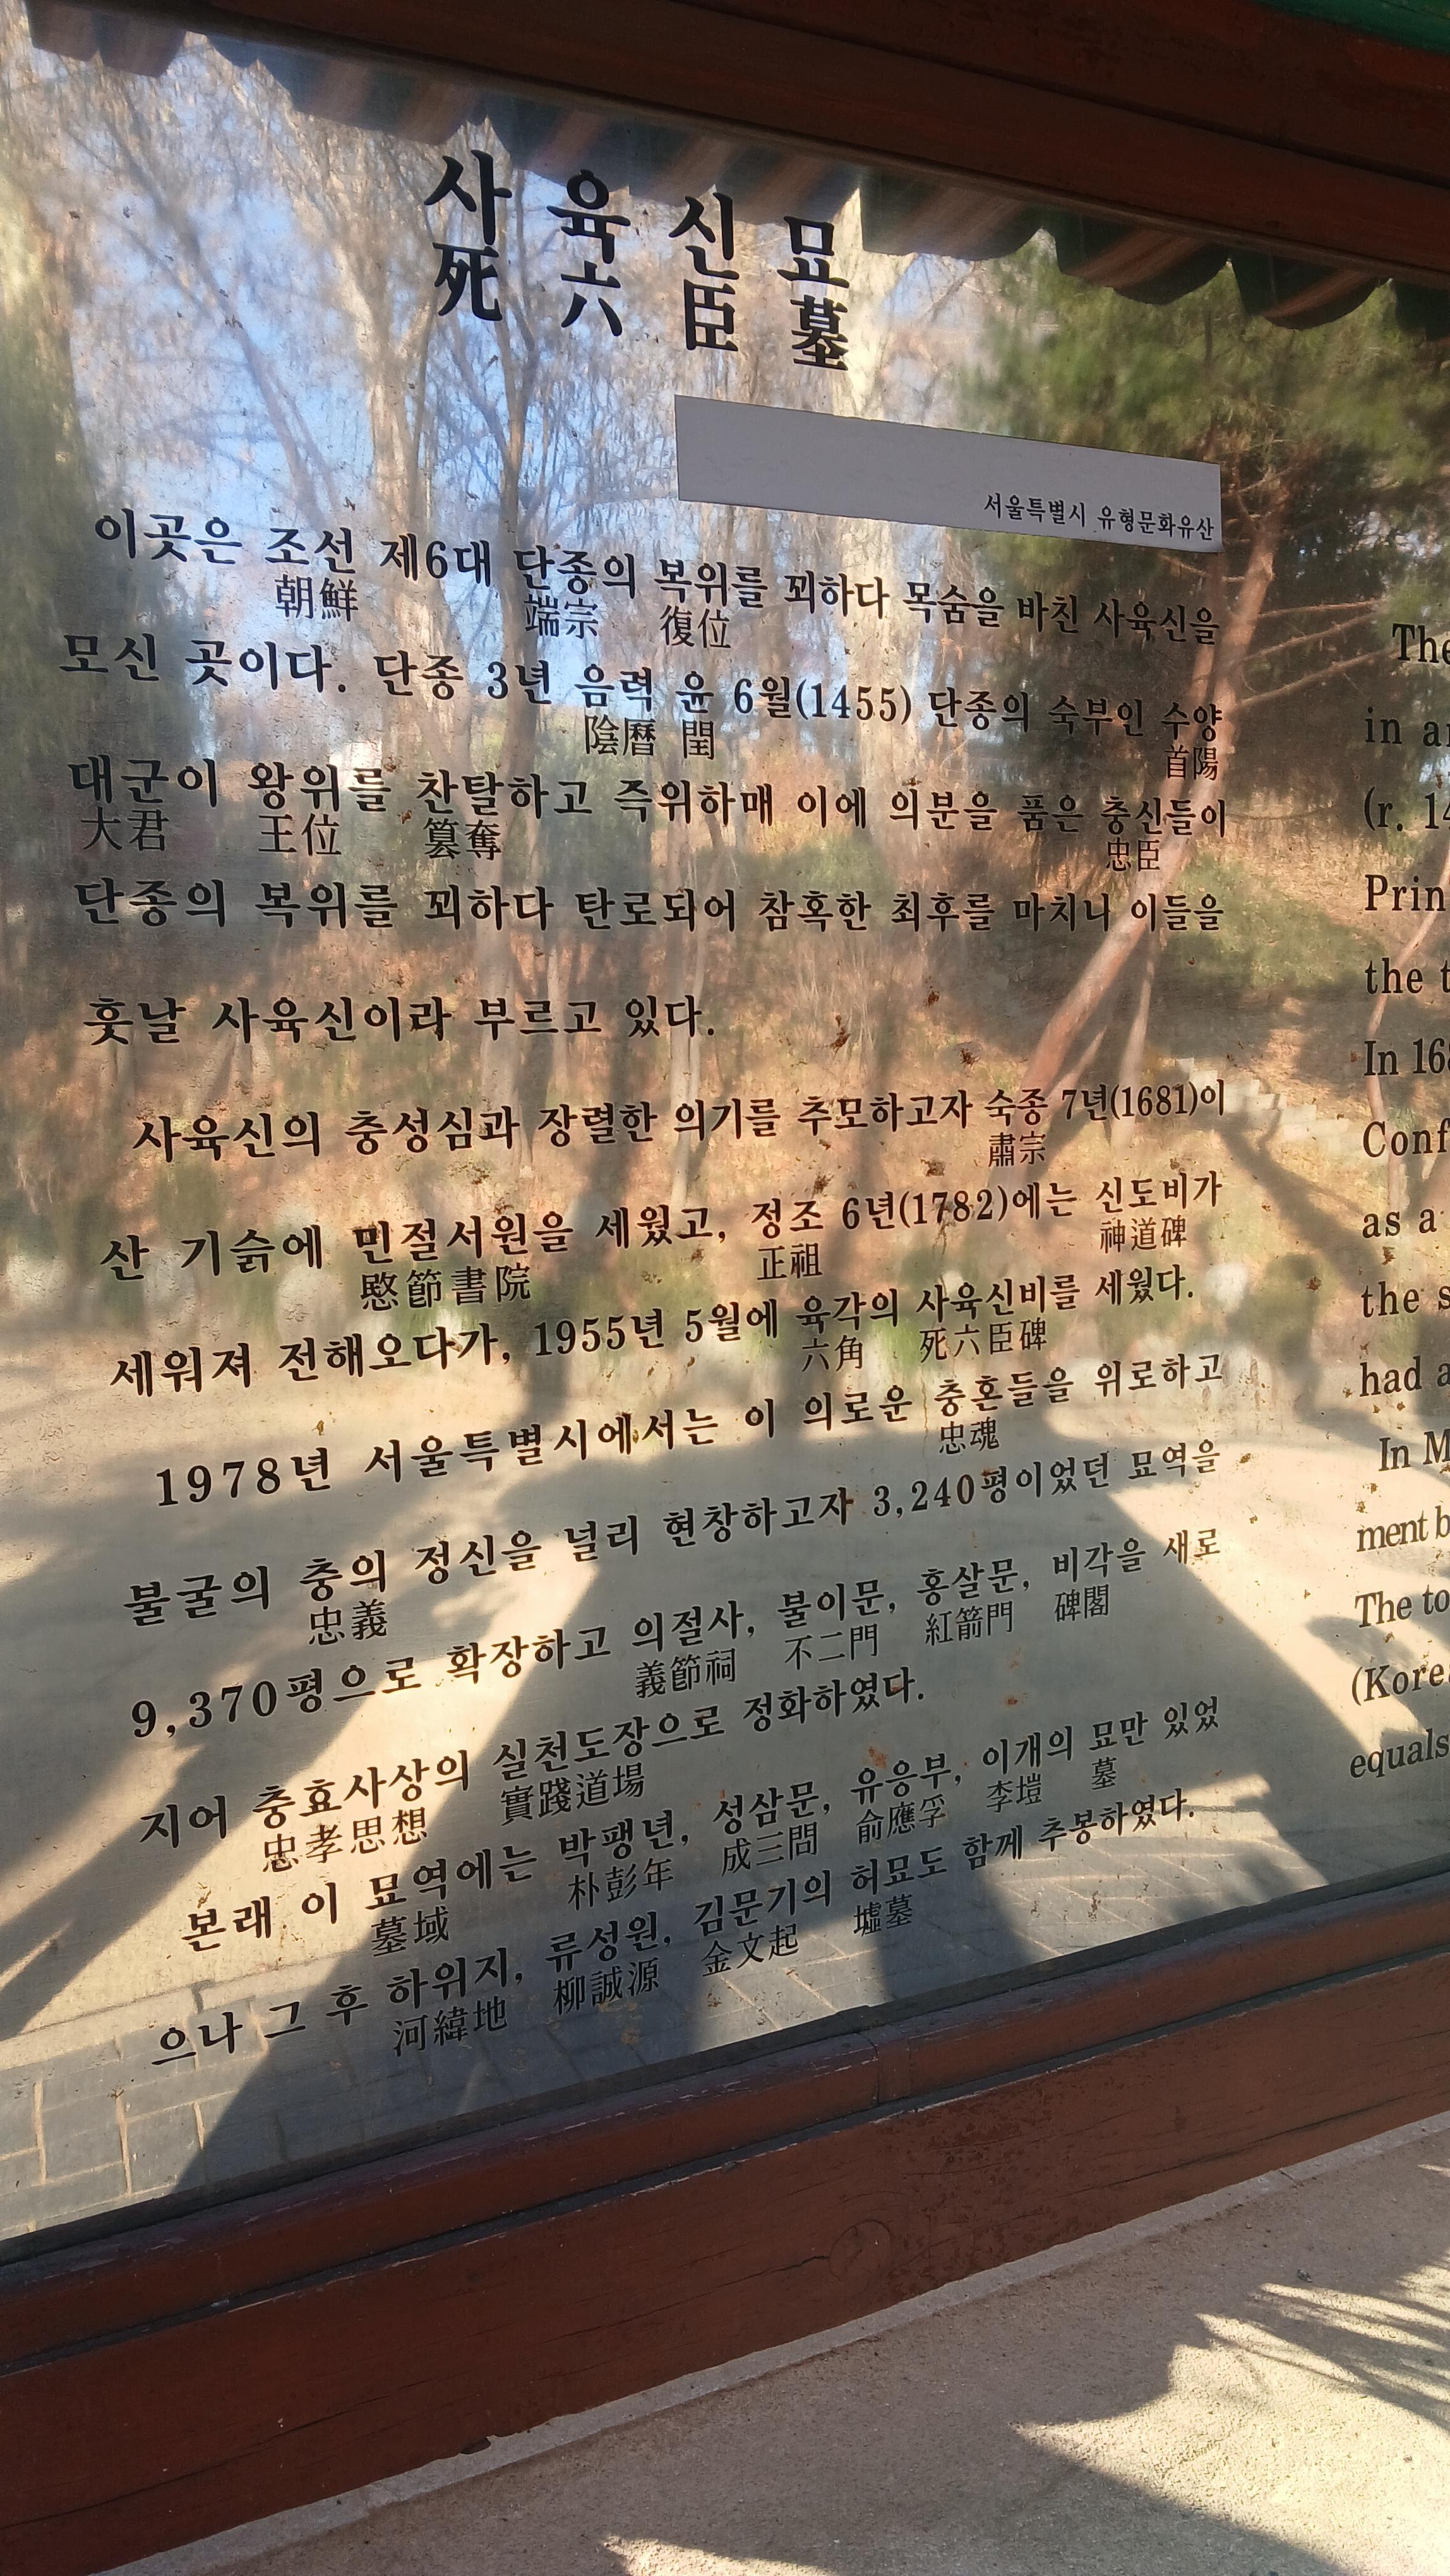 사 육 신 묘
死 六 臣 墓
서울특별시 유형문화유산
이곳은 조선 제6대 단종의 복위를 꾀하다 목숨을 바친 사육신을
朝鮮 端宗 復位
모신 곳이다. 단종 3년 음력 윤 6월(1455) 단종의 숙부인 수양
陰曆 閏 首陽
대군이 왕위를 찬탈하고 즉위하매 이에 의분을 품은 충신들이
大君 王位 簒奪 忠臣
단종의 복위를 꾀하다 탄로되어 참혹한 최후를 마치니 이들을
훗날 사육신이라 부르고 있다.
사육신의 충성심과 장렬한 의기를 추모하고자 숙종 7년(1681)이
肅宗
산 기슭에 민절서원을 세웠고, 정조 6년(1782)에는 신도비가
愍節書院 正祖 神道碑
세워져 전해오다가, 1955년 5월에 육각의 사육신비를 세웠다.
六角 死六臣碑
1978년 서울특별시에서는 이 의로운 충혼들을 위로하고
忠魂
불굴의 충의 정신을 널리 현창하고자 3,240평이었던 묘역을
忠義
9,370평으로 확장하고 의절사, 불이문, 홍살문, 비각을 새로
義節祠 不二門 紅箭門 碑閣
지어 충효사상의 실천도장으로 정화하였다.
忠孝思想 實踐道場
본래 이 묘역에는 박팽년, 성삼문, 유응부, 이개의 묘만 있었
墓域 朴彭年 成三問 俞應孚 李塏 墓
으나 그 후 하위지, 류성원, 김문기의 허묘도 함께 추봉하였다.
河緯地 柳誠源 金文起 墟墓
The
in
(r. 14
Prin
the t
In 168
Conf
as a
the s
had a
In M
ment b
The to
(Korea
equals